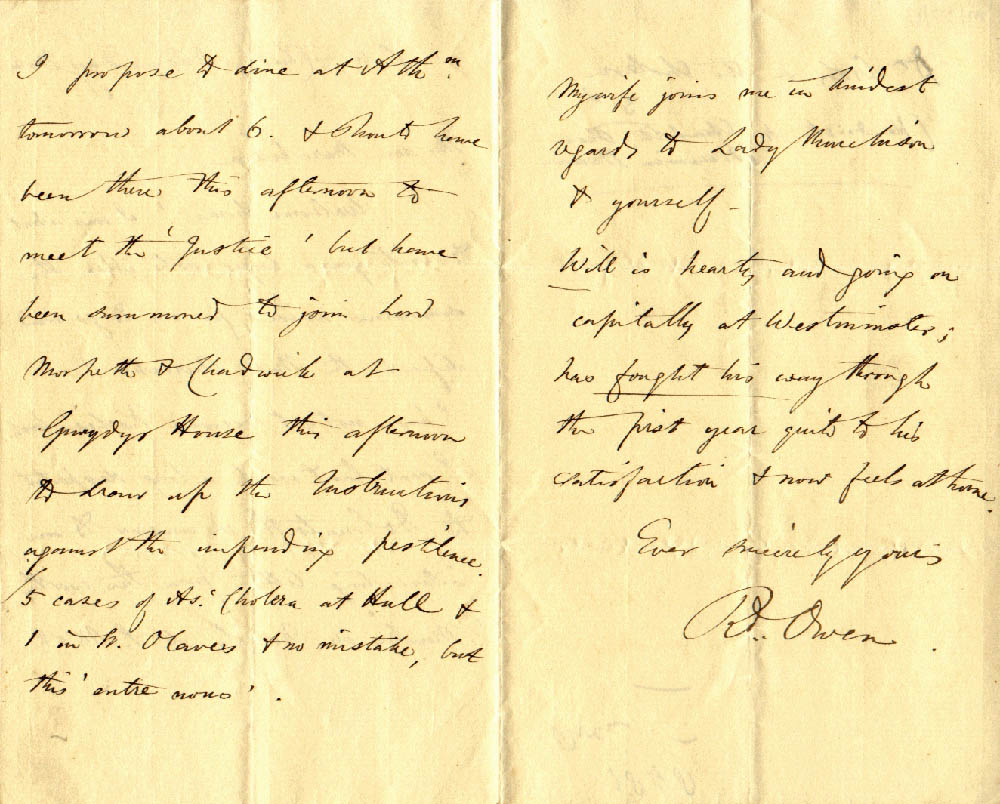 I propose to dine at Ath^m.
tomorrow about 6. & should have
been there this afternoon to
meet the 'Justice' but have
been summoned to join Lord
Morpeth & Chadwick at
Gwydyr House this afternoon
to draw up the Instructions
against the impending pestilence.
5 cases of As. Cholera at Hull &
1 in St. Olaves & no mistake, but
this 'entre nous'.
My wife joins me in kindest
regards to Lady Murchison
& yourself –
Will is hearty and going on
capitally at Westminster;
has fought his way through
the first year quite to his
satisfaction & now feels at home.
Ever sincerely yours
Rd. Owen.